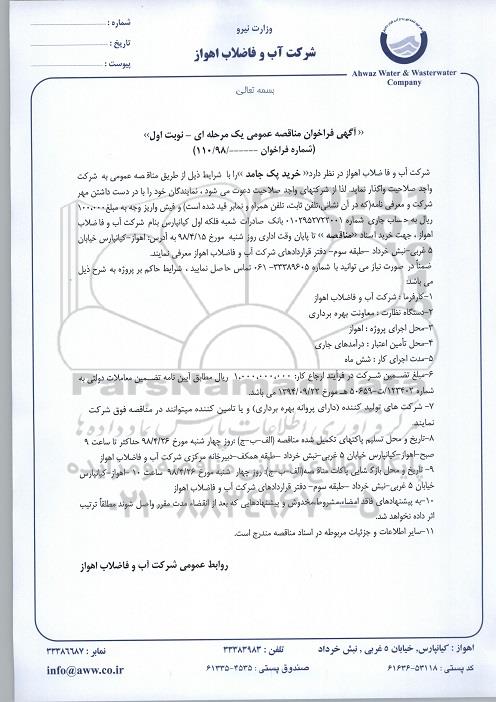 وزارت نیرو
شرکت آب و فاضلاب اهواز
شماره :
تاریخ :
پیوست :
Ahwaz Water & Wasterwater
Company
بسمه تعالی
« آگهی فراخوان مناقصه عمومی یک مرحله ای – نوبت اول»
(شماره فراخوان ------/۱۱۰/۹۸)
شرکت آب و فاضلاب اهواز در نظر دارد« خرید پک جامد »را با شرایط ذیل از طریق مناقصه عمومی به شرکت
واجد صلاحیت واگذار نماید. لذا از شرکتهای واجد صلاحیت دعوت می شود ، نمایندگان خود را با در دست داشتن مهر
شرکت و معرفی نامه(که در آن نشانی،تلفن ثابت، تلفن همراه و نمابر قید شده است) و فیش واریز وجه به مبلغ۱۰۰.۰۰۰
ریال به حساب جاری شماره ۰۱۰۲۹۵۲۷۲۲۰۰۱ بانک صادرات شعبه فلکه اول کیانپارس بنام شرکت آب و فاضلاب
اهواز ، جهت خرید اسناد «مناقصه » تا پایان وقت اداری روز شنبه مورخ ۹۸/۴/۱۵ به آدرس: اهواز-کیانپارس خیابان
۵ غربی-نبش خرداد –طبقه سوم- دفتر قراردادهای شرکت آب و فاضلاب اهواز معرفی نمایند.
ضمناً در صورت نیاز می توانید با شماره ۳۳۳۸۹۶۰۵-۰۶۱ تماس حاصل نمایید ، شرایط حاکم بر پروژه به شرح ذیل
می باشد:
۱-کارفرما : شرکت آب و فاضلاب اهواز
۲-دستگاه نظارت : معاونت بهره برداری
۳-محل اجرای پروژه : اهواز
۴-محل تأمین اعتبار : درآمدهای جاری
۵-مدت اجرای کار : شش ماه
۶-مبلغ تضمین شرکت در فرایند ارجاع کار: ۱.۰۰۰.۰۰۰.۰۰۰ ریال مطابق آیین نامه تضمین معاملات دولتی به
شماره ۱۲۳۴۰۲/ت-۵۰۶۵۹ هـ مورخ ۱۳۹۴/۰۹/۲۲ می باشد.
۷- شرکت های تولید کننده (دارای پروانه بهره برداری) و یا تامین کننده میتوانند در مناقصه فوق شرکت
نمایند.
۸-تاریخ و محل تسلیم پاکتهای تکمیل شده مناقصه (الف-ب-ج) :روز چهار شنبه مورخ ۹۸/۴/۲۶ حداکثر تا ساعت ۹
صبح-اهواز-کیانپارس خیابان ۵ غربی-نبش خرداد –طبقه همکف-دبیرخانه مرکزی شرکت آب و فاضلاب اهواز
۹- تاریخ و محل بازگشایی پاکات مناقصه(الف-ب-ج) روز چهار شنبه مورخ ۹۸/۴/۲۶ ساعت ۱۰ -اهواز-کیانپارس
خیابان ۵ غربی-نبش خرداد –طبقه سوم- دفتر قراردادهای شرکت آب و فاضلاب اهواز
۱۰-به پیشنهادهای فاقد امضاء،مشروط،مخدوش و پیشنهادهایی که بعد از انقضاء مدت مقرر واصل شوند مطلقاً ترتیب
اثر داده نخواهد شد.
۱۱-سایر اطلاعات و جزئیات مربوطه در اسناد مناقصه مندرج است.
روابط عمومی شرکت آب و فاضلاب اهواز
ParsNamadData
گرد آوری اطلاعات پارس نماد داده ها
۰۲۱-۸۸۳۴۹۶۷۰-۵
اهواز : کیانپارس, خیابان ۵ غربی , نبش خرداد
تلفن : ۳۳۳۸۳۹۸۳
نمابر : ۳۳۳۸۶۶۸۷
کد پستی : ۵۳۱۱۸-۶۱۶۳۶
صندوق پستی : ۴۵۳۵-۶۱۳۳۵
info@aww.co.ir